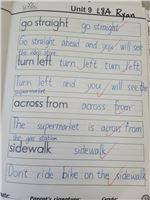 Unit 9 L8A Ryan
go straight go straight
Go straight ahead and you will see
the video store.
turn left turn left turn left
Turn left and you will see the
supermarket.
across from across from
The supermarket is across from
the gas station.
sidewalk sidewalk
Dont ride bike on the sidewalk
Parent's signature: Grade: